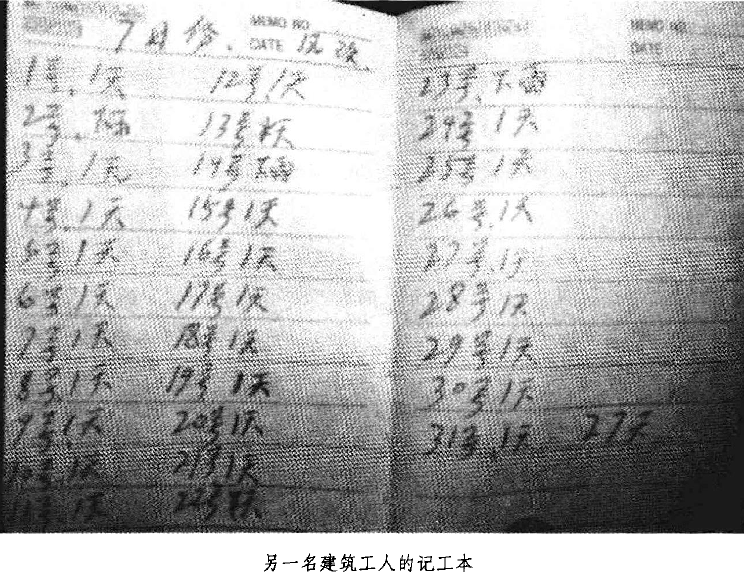 MEMO NO
7月份 DATE
1号.1天
2号.下雨
3号.1天
4号.1天
5号.1天
6号.1天
7号.1天
8号.1天
9号.1天
10号.1天
11号.1天
12号.1天
13号
14号下雨
15号1天
16号1天
17号1天
18号1天
19号1天
20号1天
21号1天
22号
MEMO NO
DATE
23号.下雨
24号1天
25号1天
26号.1天
27号.1天
28号1天
29号1天
30号1天
31号.1天 27天
另一名建筑工人的记工本